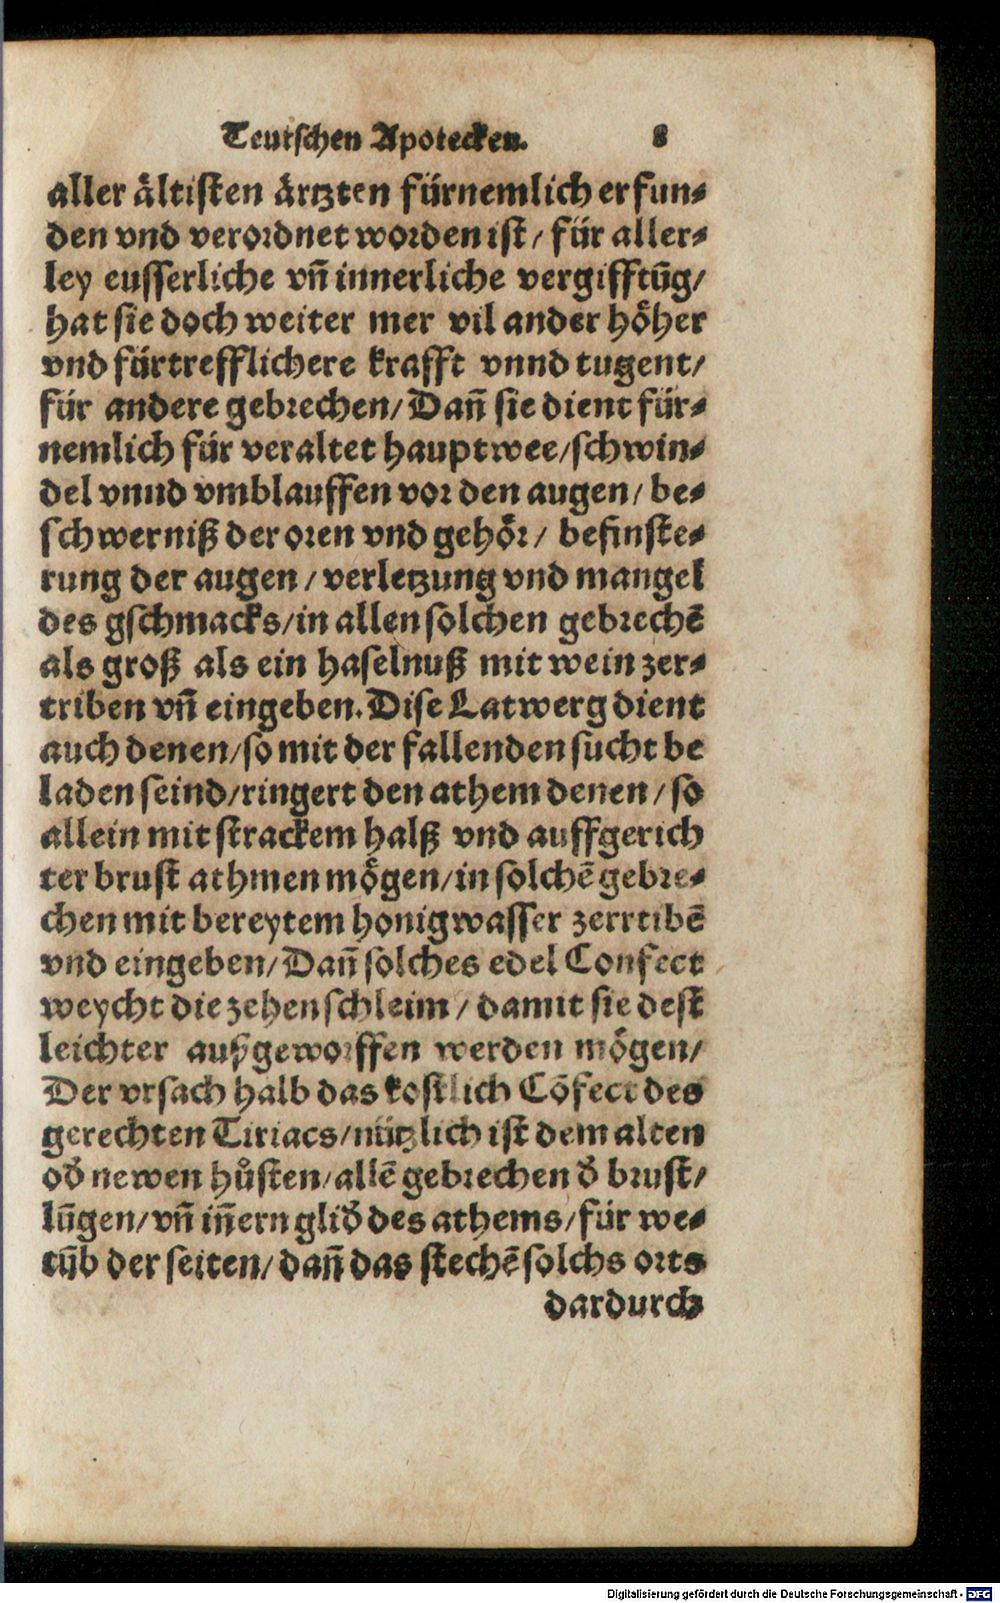 Teutschen Apotecken. 8
aller ältisten ärtzten fürnemlich erfun⸗
den vnd verordnet worden ist/ für aller⸗
ley eusserliche vñ innerliche vergifftũg/
hat sie doch weiter mer vil ander höher
vnd fürtrefflichere krafft vnnd tugent/
für andere gebrechen/ Dañ sie dient für⸗
nemlich für veraltet hauptwee/schwin⸗
del vnnd vmblauffen vor den augen/ be⸗
schwerniß der oren vnd gehör/ befinste⸗
rung der augen/ verletzung vnd mangel
des gschmacks/in allen solchen gebrechẽ
als groß als ein haselnuß mit wein zer⸗
triben vñ eingeben. Dise Latwerg dient
auch denen/so mit der fallenden sucht be
laden seind/ringert den athem denen/ so
allein mit strackem halß vnd auffgerich
ter brust athmen mögen/in solchẽ gebre⸗
chen mit bereytem honigwasser zerrtibẽ
vnd eingeben/ Dañ solches edel Confect
weycht die zehen schleim/ damit sie dest
leichter außgeworffen werden mögen/
Der vrsach halb das kostlich Cõfect des
gerechten Tiriacs/nützlich ist dem alten
od̕ newen hůsten/allẽ gebrechen d̕ brust/
lũgen/vñ iñern glid̕ des athems/für we⸗
tũb der seiten/ dañ das stechẽ solchs orts
dardurch
Digitalisierung gefördert durch die Deutsche Forschungsgemeinschaft - DFG